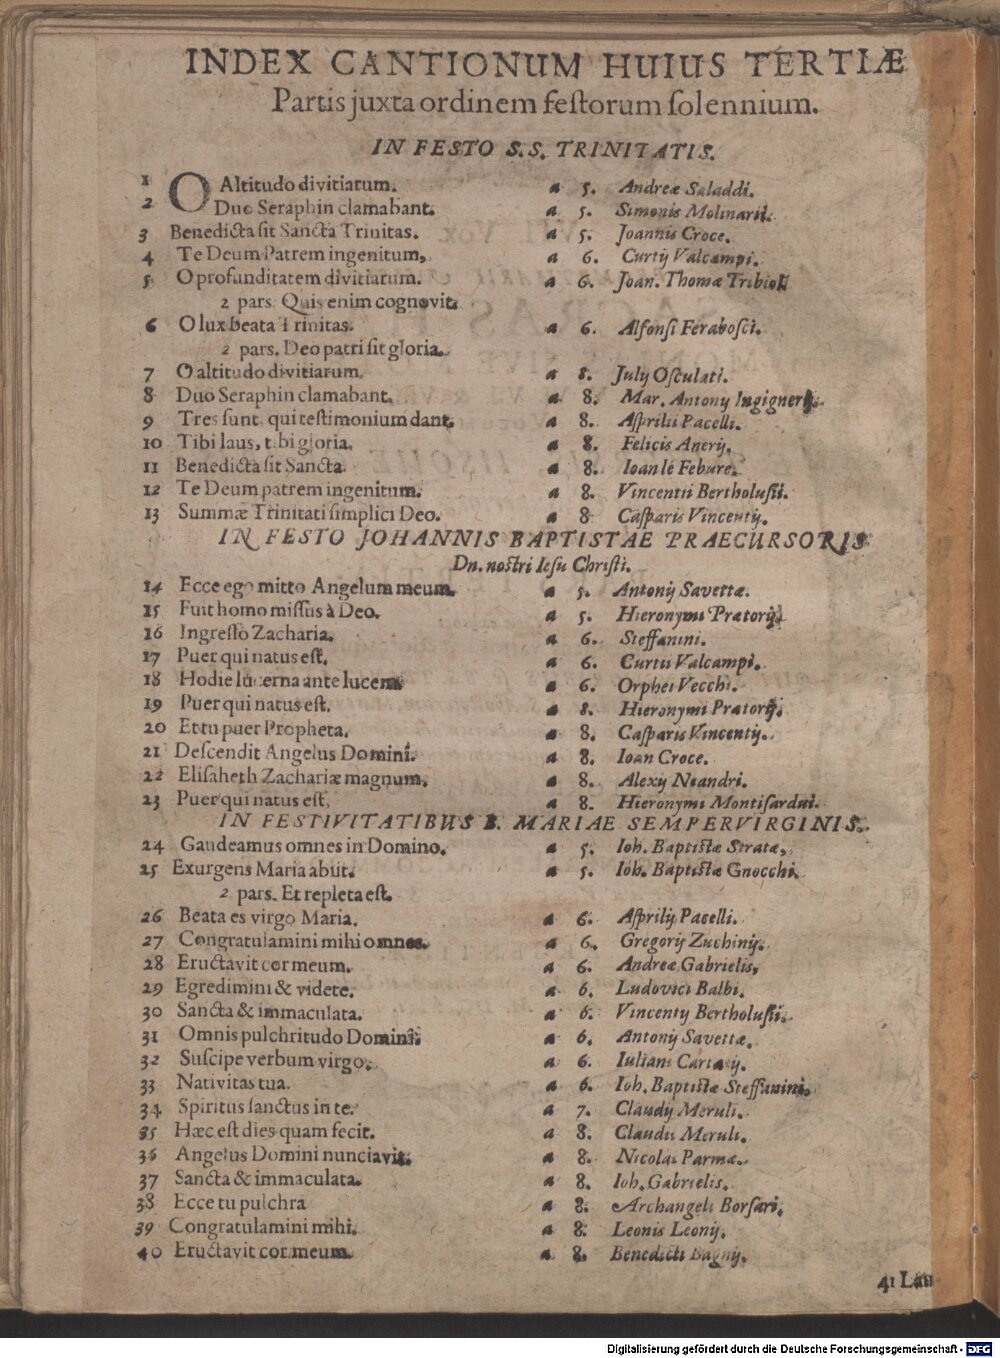 INDEX CANTIONUM HUIUS TERTIÆ
Partis juxta ordinem festorum solennium.
IN FESTO S.S. TRINITATIS.
1 O Altitudo divitiarum. a 5. Andreæ Saladdi.
2 Duo Seraphin clamabant. a 5. Simonis Molinarii.
3 Benedicta sit Sancta Trinitas. a 5. Joannis Croce.
4 Te Deum Patrem ingenitum, a 6. Curtij Valcampi.
5 O profunditatem divitiarum. a 6. Joan. Thomæ Tribioli
2 pars. Quis enim cognovit.
6 O lux beata Trinitas. a 6. Alfonsi Ferabosci.
2 pars. Deo patri sit gloria.
7 O altitudo divitiarum. a 8. Julij Osculati.
8 Duo Seraphin clamabant. a 8. Mar. Antonij Ingignerij.
9 Tres sunt, qui testimonium dant. a 8. Asprilii Pacelli.
10 Tibi laus, tibi gloria. a 8. Felicis Anerij.
11 Benedicta sit Sancta. a 8. Ioan le Febure.
12 Te Deum patrem ingenitum. a 8. Vincentii Bertholusii.
13 Summæ Trinitati simplici Deo. a 8 Casparis Vincentij.
IN FESTO JOHANNIS BAPTISTAE PRAECURSORIS
Dn. nostri Iesu Christi.
14 Ecce ego mitto Angelum meum. a 5. Antonij Savettæ.
15 Fuit homo missus à Deo. a 5. Hieronymi Prætorij
16 Ingresso Zacharia. a 6. Steffanini.
17 Puer qui natus est. a 6. Curtii Valcampi.
18 Hodie lucerna ante lucem a 6. Orphei Vecchi.
19 Puer qui natus est. a 8. Hieronymi Prætorij.
20 Et tu puer Propheta. a 8. Casparis Vincentij.
21 Descendit Angelus Domini. a 8. Ioan Croce.
22 Elisaheth Zachariæ magnum. a 8. Alexij Neandri.
23 Puer qui natus est. a 8. Hieronymi Montisardui.
IN FESTIVITATIBUS B. MARIAE SEMPERVIRGINIS.
24 Gaudeamus omnes in Domino. a 5. Ioh. Baptistæ Stratæ.
25 Exurgens Maria abiit. a 5. Ioh. Baptistæ Gnocchi.
2 pars. Et repleta est.
26 Beata es virgo Maria. a 6. Asprilij Pacelli.
27 Congratulamini mihi omnes. a 6. Gregorij Zuchinij.
28 Eructavit cor meum. a 6. Andreæ Gabrielis,
29 Egredimini & videte. a 6. Ludovici Balbi.
30 Sancta & immaculata. a 6. Vincentij Bertholusii.
31 Omnis pulchritudo Domini. a 6. Antonij Savettæ.
32 Suscipe verbum virgo. a 6. Iuliani Cartarij.
33 Nativitas tua. a 6. Ioh. Baptistæ Steffanini.
34 Spiritus sanctus in te. a 7. Claudij Meruli.
35 Hæc est dies quam fecit. a 8. Claudii Meruli.
36 Angelus Domini nunciavit. a 8. Nicolai Parmæ.
37 Sancta & immaculata. a 8. Ioh. Gabrielis.
38 Ecce tu pulchra a 8. Archangeli Borsari.
39 Congratulamini mihi. a 8. Leonis Leonij.
40 Eructavit cor meum. a 8. Benedicti Bagnij.
41 Lau
Digitalisierung gefördert durch die Deutsche Forschungsgemeinschaft - DFG